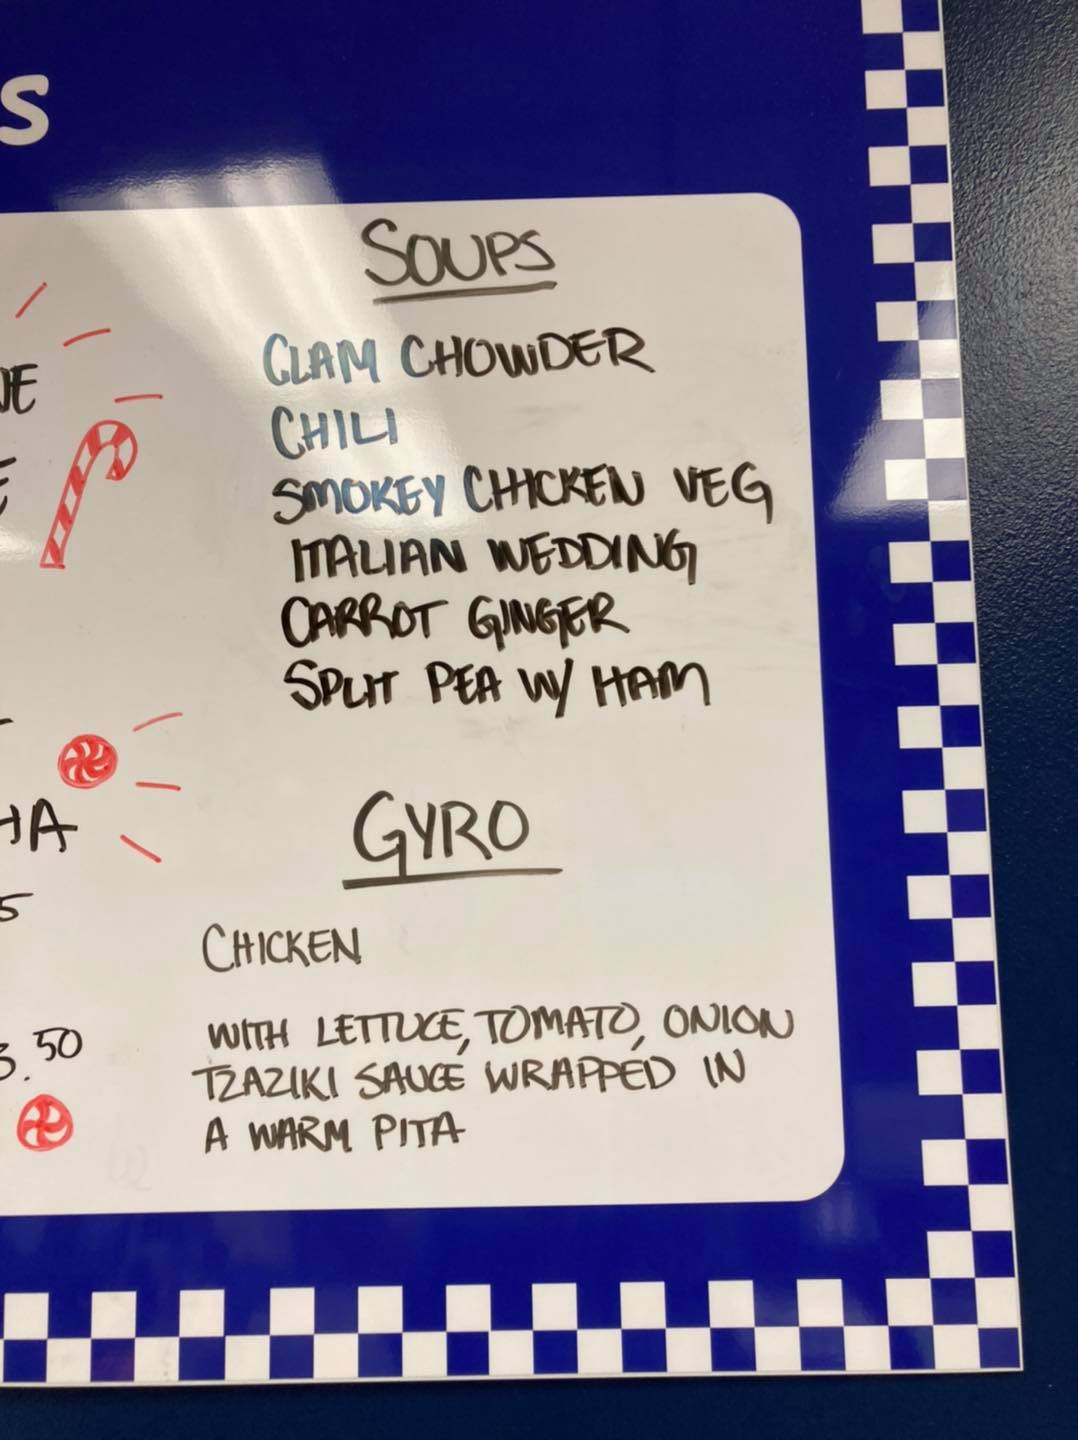 S
SOUPS
CLAM CHOWDER
CHILI
SMOKEY CHICKEN VEG
ITALIAN WEDDING
CARROT GINGER
SPLIT PEA W/ HAM
GYRO
CHICKEN
WITH LETTUCE, TOMATO, ONION
TZAZIKI SAUCE WRAPPED IN
A WARM PITA
HA
5
3.50